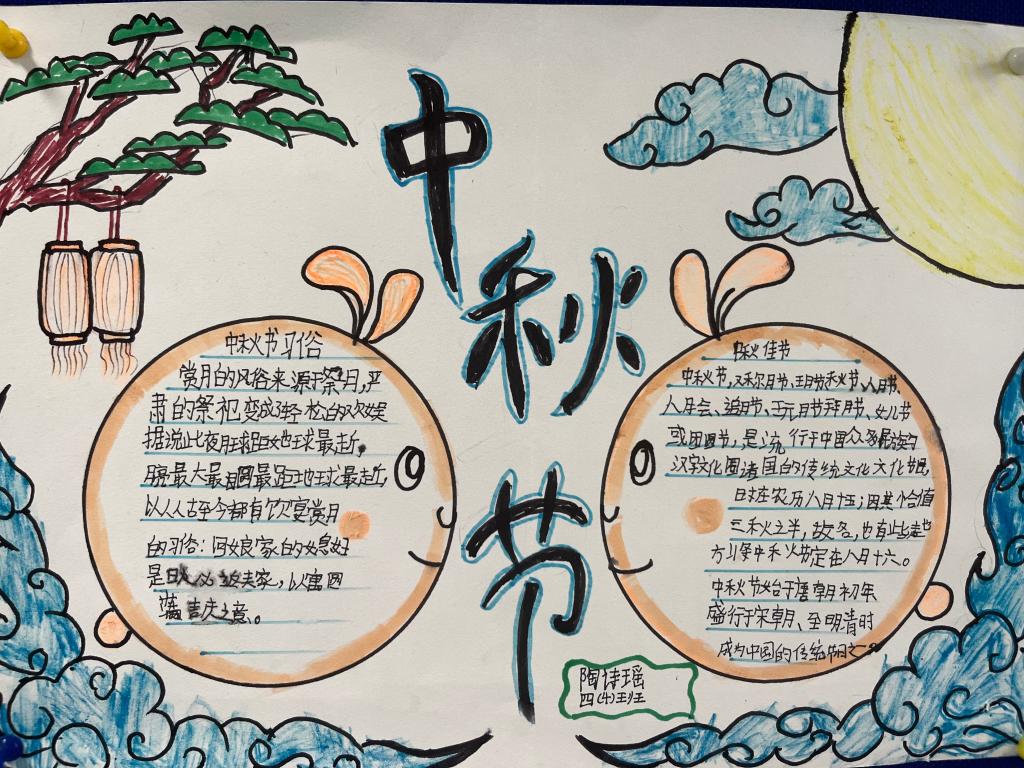 中秋节
中秋节习俗
赏月的风俗来源于祭月,严
肃的祭祀变成了轻松的欢娱
据说此夜月球距地球最近,
月最大最圆最
以从古至今都有饮宴赏月
的习俗:回娘家的媳妇
是日必返夫家,以寓圆
满吉庆之意。
中秋佳节
中秋节,又称月节、
人月会、追月节、玩月节拜月节、女儿节
或团圆节,是流行于中国众多民族的
汉字文化圈诸国的传统文化文化节日,
日在农历八月十五;因其恰值
三秋之半,故名,也有些地
方将中秋节定在八月十六。
中秋节始于唐朝初年
盛行于宋朝、至明清时
成为中国的传统节日之一
陶诗瑶
四(4)班